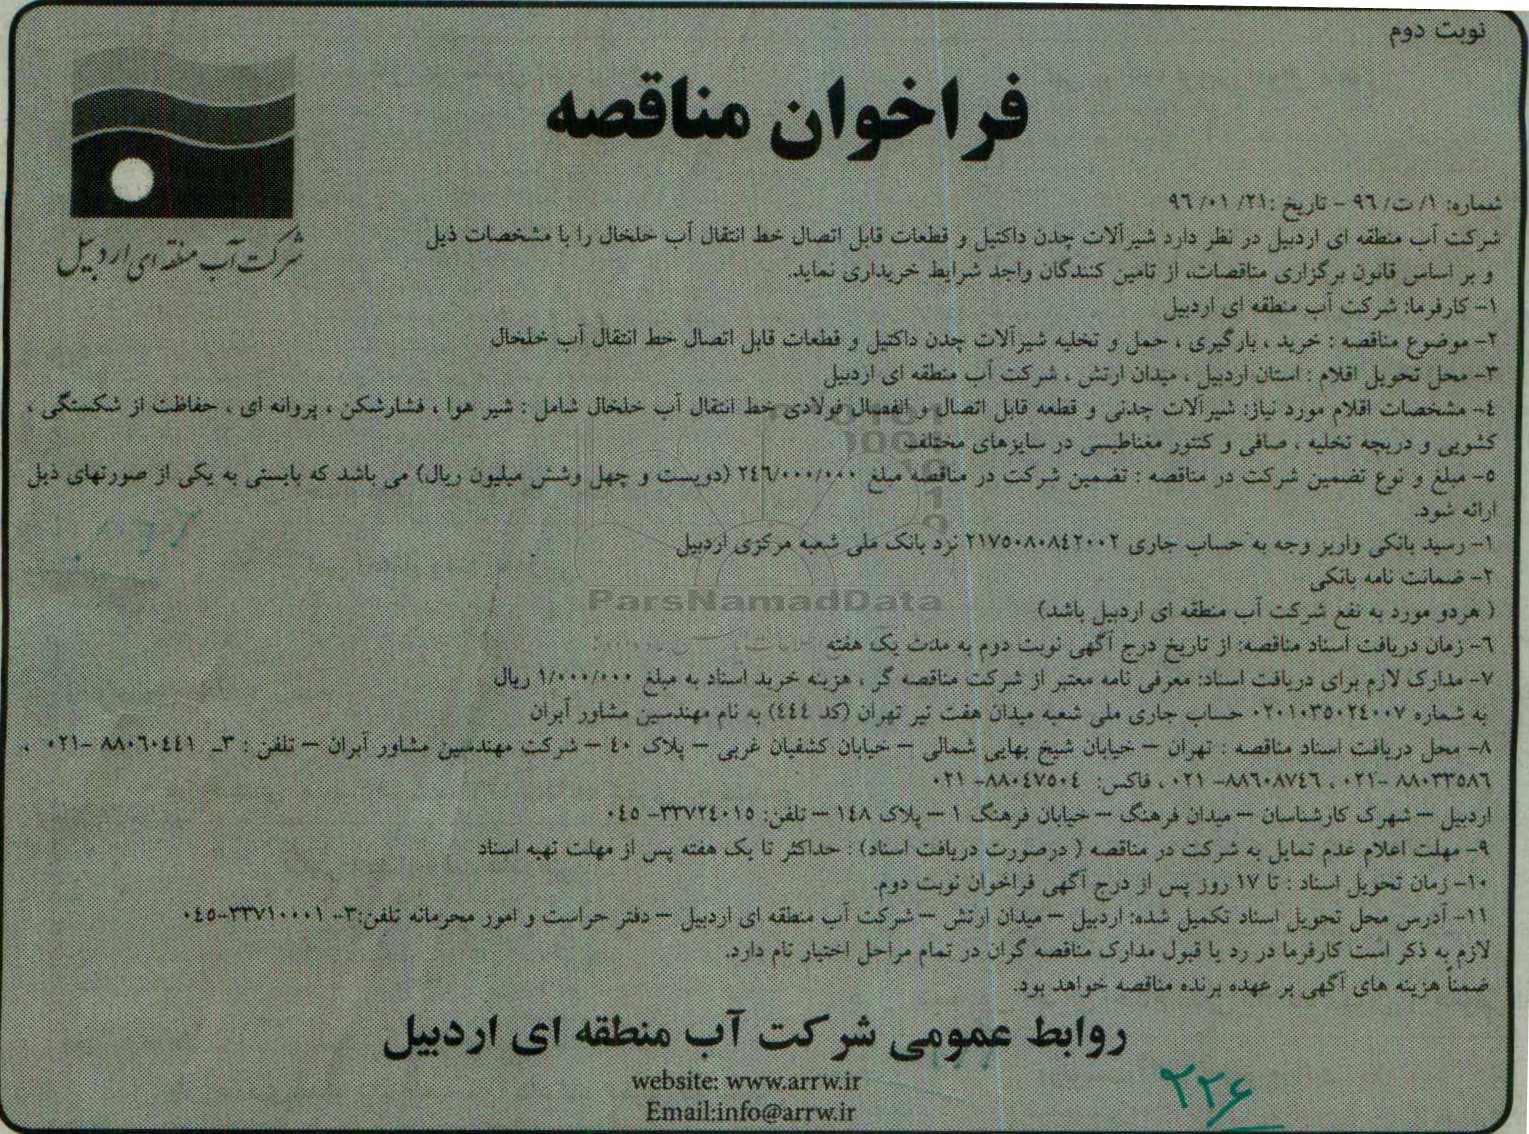 نوبت دوم
فراخوان مناقصه
شرکت آب منطقه ای اردبیل
شماره: ۱/ ت/ ۹۶ - تاریخ :۲۱/ ۰۱/ ۹۶
شرکت آب منطقه ای اردبیل در نظر دارد شیرآلات چدن داکتیل و قطعات قابل اتصال خط انتقال آب خلخال را با مشخصات ذیل
و بر اساس قانون برگزاری مناقصات، از تامین کنندگان واجد شرایط خریداری نماید.
۱- کارفرما: شرکت آب منطقه ای اردبیل
۲- موضوع مناقصه : خرید ، بارگیری ، حمل و تخلیه شیرآلات چدن داکتیل و قطعات قابل اتصال خط انتقال آب خلخال
۳- محل تحویل اقلام : استان اردبیل ، میدان ارتش ، شرکت آب منطقه ای اردبیل
۴- مشخصات اقلام مورد نیاز: شیرآلات چدنی و قطعه قابل اتصال و انفصال فولادی خط انتقال آب خلخال شامل : شیر هوا ، فشارشکن ، پروانه ای ، حفاظت از شکستگی ،
کشویی و دریچه تخلیه ، صافی و کنتور مغناطیسی در سایزهای مختلف
۵- مبلغ و نوع تضمین شرکت در مناقصه : تضمین شرکت در مناقصه مبلغ ۲۴۶/۰۰۰/۰۰۰ (دویست و چهل وشش میلیون ریال) می باشد که بایستی به یکی از صورتهای ذیل
ارائه شود.
۱- رسید بانکی واریز وجه به حساب جاری ۲۱۷۵۰۸۰۸۴۲۰۰۲ نزد بانک ملی شعبه مرکزی اردبیل
۲- ضمانت نامه بانکی
( هردو مورد به نفع شرکت آب منطقه ای اردبیل باشد)
ParsNamadData
۶- زمان دریافت اسناد مناقصه: از تاریخ درج آگهی نوبت دوم به مدت یک هفته
۷- مدارک لازم برای دریافت اسناد: معرفی نامه معتبر از شرکت مناقصه گر ، هزینه خرید اسناد به مبلغ ۱/۰۰۰/۰۰۰ ریال
به شماره ۰۲۰۱۰۳۵۰۲۴۰۰۷ حساب جاری ملی شعبه میدان هفت تیر تهران (کد ۴۴۴) به نام مهندسین مشاور آبران
۸- محل دریافت اسناد مناقصه : تهران – خیابان شیخ بهایی شمالی – خیابان کشفیان غربی – پلاک ۴۰ – شرکت مهندسین مشاور آبران – تلفن : ۳- ۸۸۰۶۰۴۴۱ -۰۲۱ ،
۸۸۰۳۳۵۸۶ -۰۲۱ ، ۸۸۶۰۸۷۴۶- ۰۲۱ ، فاکس: ۸۸۰۴۷۵۰۴- ۰۲۱
اردبیل – شهرک کارشناسان – میدان فرهنگ – خیابان فرهنگ ۱ – پلاک ۱۴۸ – تلفن: ۳۳۷۲۴۰۱۵- ۰۴۵
۹- مهلت اعلام عدم تمایل به شرکت در مناقصه ( درصورت دریافت اسناد) : حداکثر تا یک هفته پس از مهلت تهیه اسناد
۱۰- زمان تحویل اسناد : تا ۱۷ روز پس از درج آگهی فراخوان نوبت دوم.
۱۱- آدرس محل تحویل اسناد تکمیل شده: اردبیل – میدان ارتش – شرکت آب منطقه ای اردبیل – دفتر حراست و امور محرمانه تلفن:۳- ۳۳۷۱۰۰۰۱-۰۴۵
لازم به ذکر است کارفرما در رد یا قبول مدارک مناقصه گران در تمام مراحل اختیار تام دارد.
ضمناً هزینه های آگهی بر عهده برنده مناقصه خواهد بود.
روابط عمومی شرکت آب منطقه ای اردبیل
website: www.arrw.ir
Email:info@arrw.ir
۲۲۶